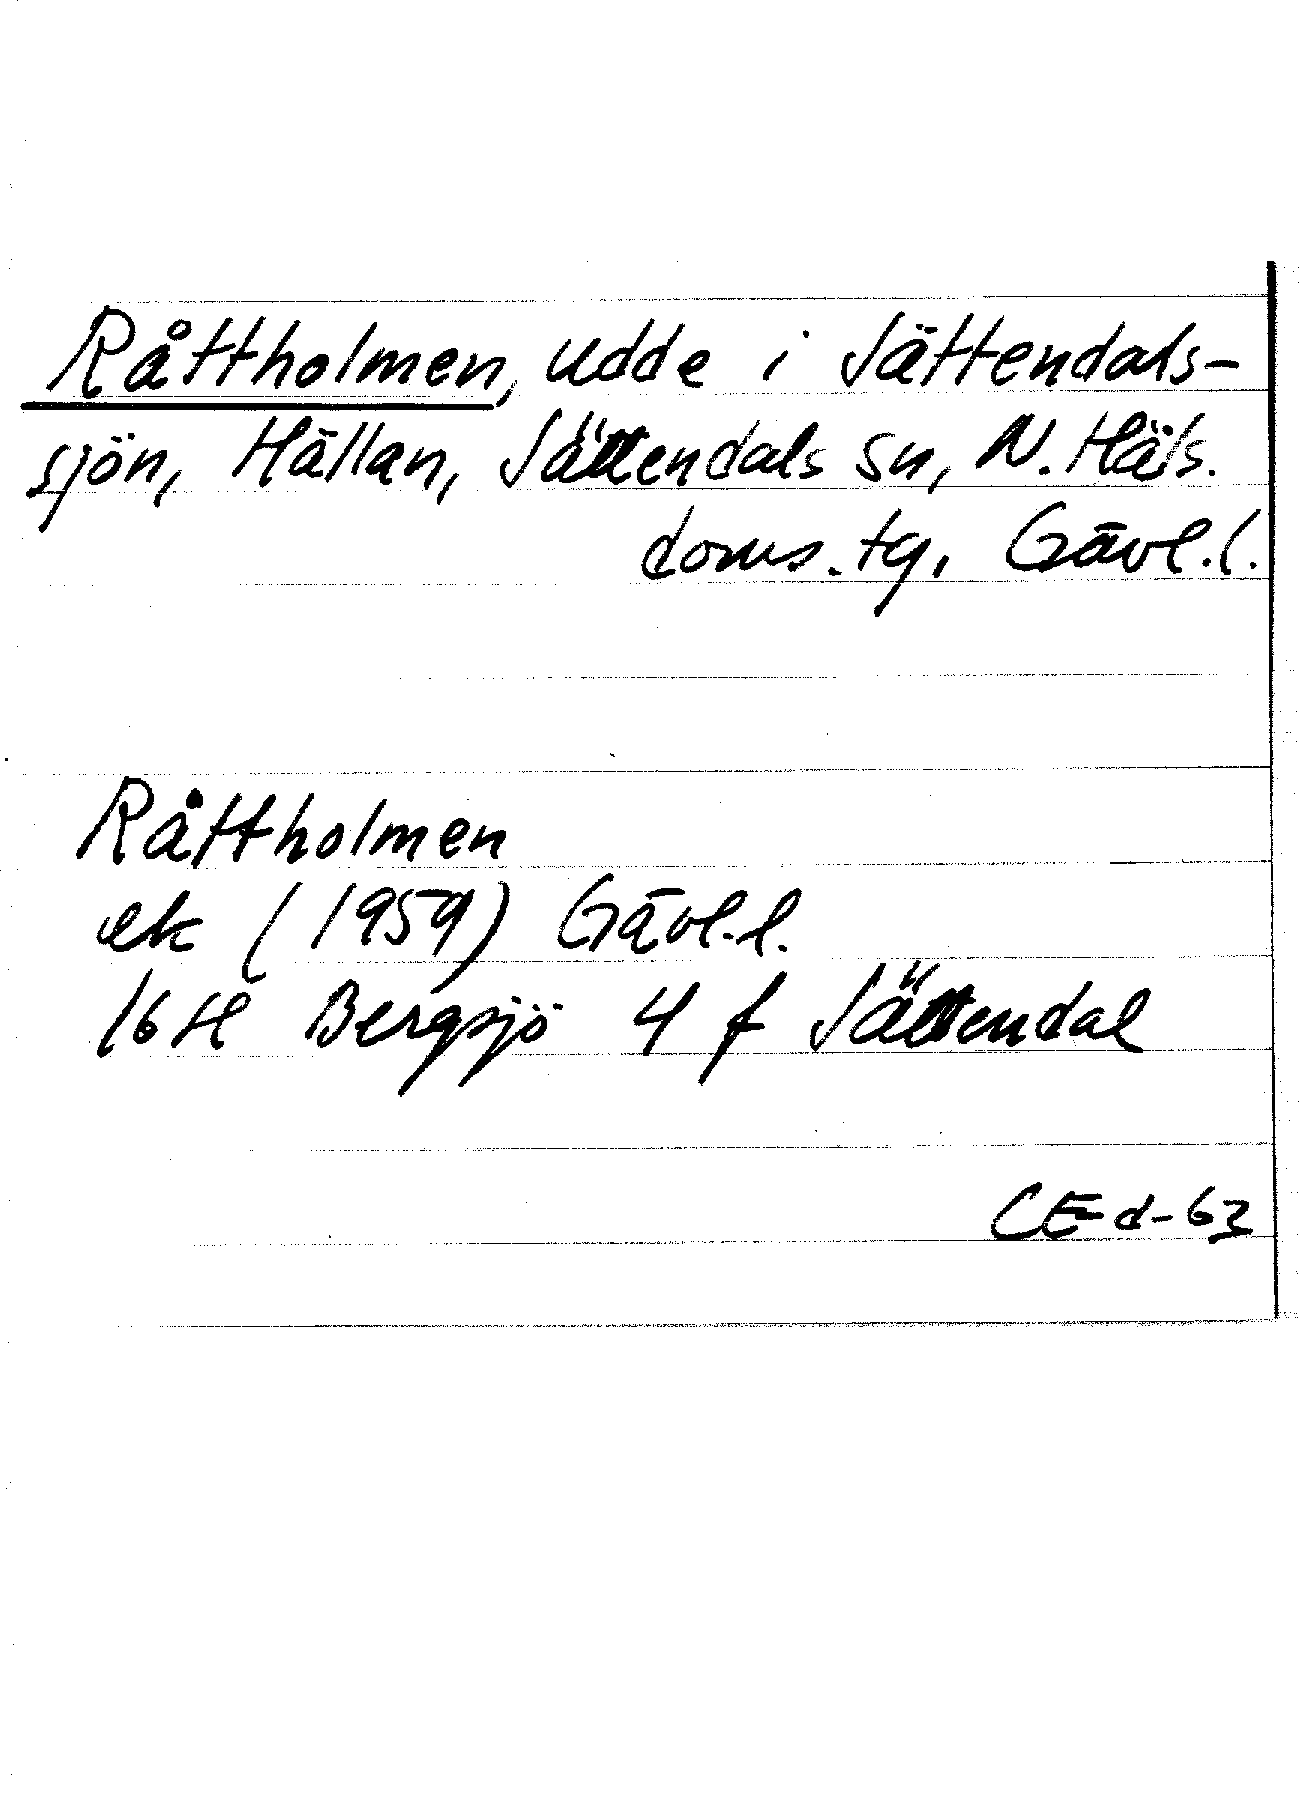 Råttholmen, udde i Jättendals-
sjön, Hällan, Jättendals sn, N. Häls.
doms. tg, Gävl.l.
Råttholmen
ek (1959) Gävl.l.
16H Bergsjö 4 f Jättendal
CEd-63